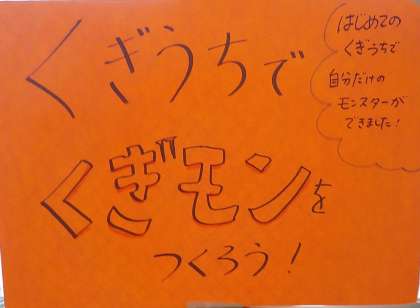 くぎうちで
くぎモンを
つくろう!
はじめての
くぎうちで
自分だけの
モンスターが
できました!